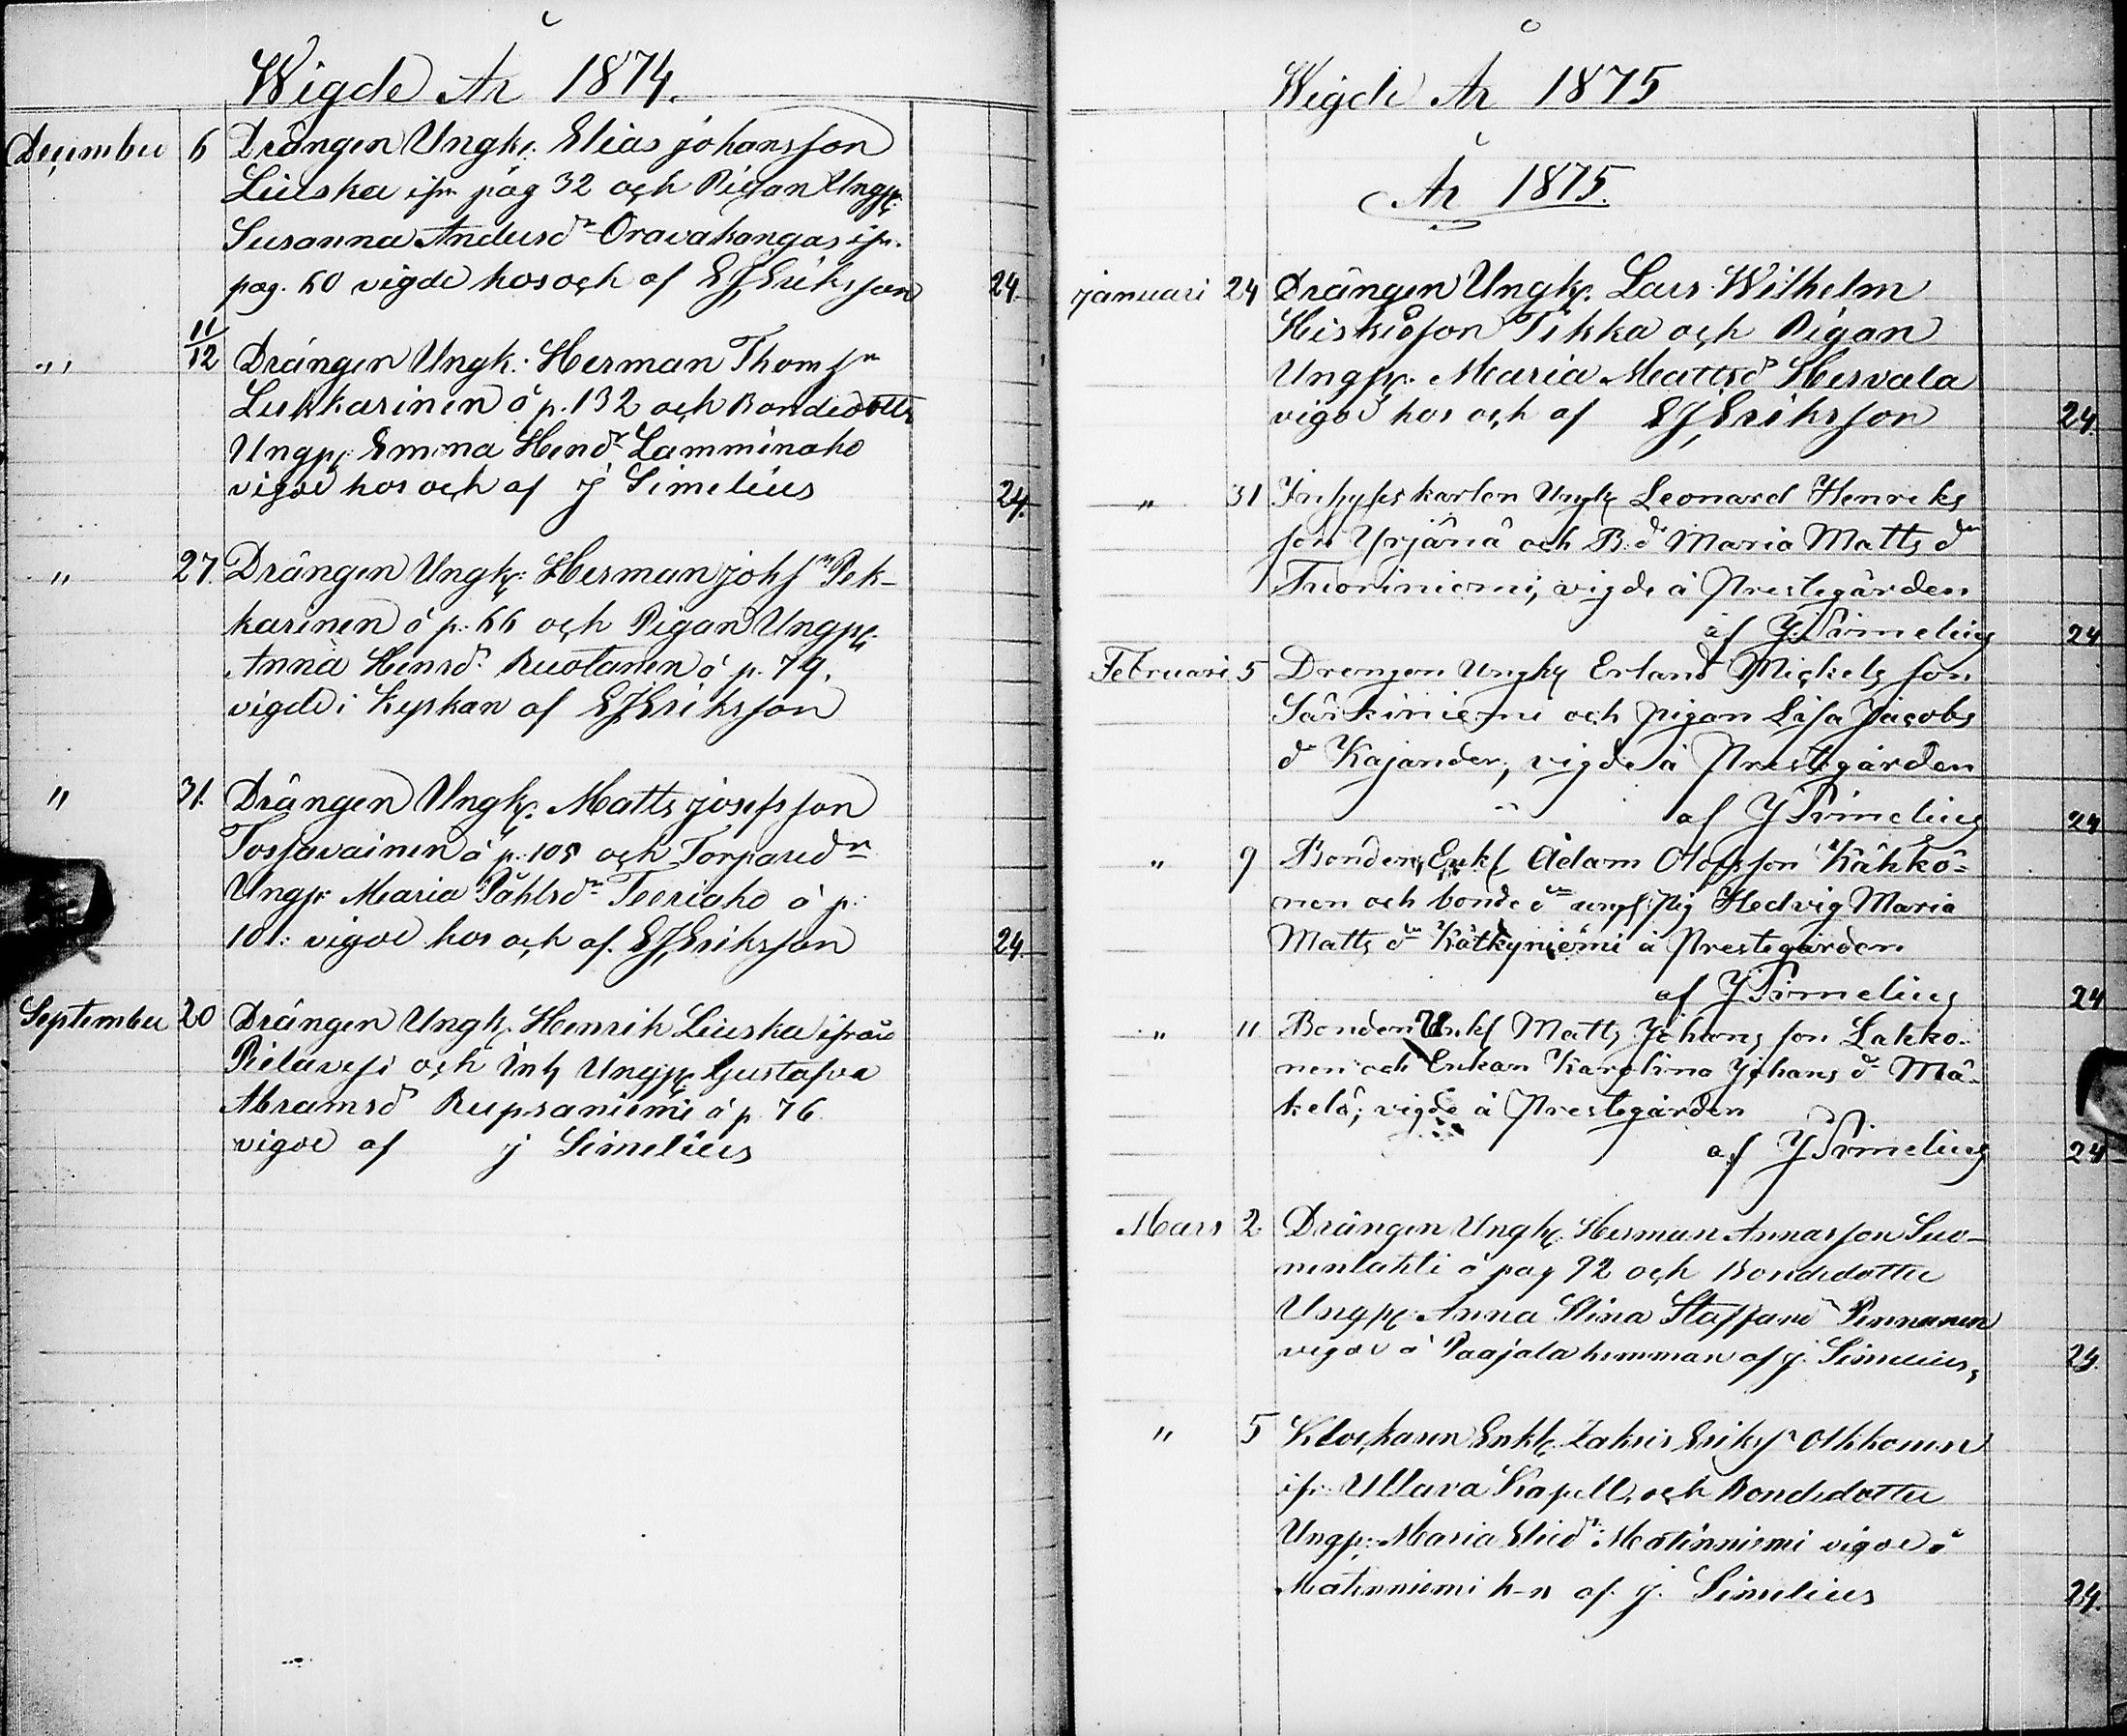 Wigde År 1874.
December 6 Drängen Ungk. Elias Johansson
Liuska ifn pag 32 och Pigan Ungp.
Susanna Andersdr Oravakangas ifr.
pag. 60 vigde hos och af EJEriksson 24.
" 11/12 Drängen Ungk. Herman Thomsn
Lukkarinen å p. 132 och Bondedotter
Ungp. Emma Hendr Lamminaho
vigde hos och af J Simelius 24.
" 27. Drängen Ungk. Herman Johsn Pek-
karinen å p. 66 och Pigan Ungp.
Anna Hensdr Ruotanen å p. 79.
vigde i Kyrkan af EJEriksson
" 31. Drängen Ungk. Matts Josefsson
Tossavainen å p. 105 och Torparedr
Ungp. Maria Påhlsdr Teeriaho å p.
101: vigde hos och af. EJEriksson 24.
September 20 Drängen Ungk. Henrik Liuska ifrån
Pielavesi och Inh Ungp. Gustafva
Abramsdr Rupsaniemi å p. 76
vigde af J Simelius
Wigde År 1875
År 1875.
Januari 24 Drängen Ungk. Lars Wilhelm
Hiskiasson Tikka och Pigan
Ungp. Maria Mattsdr Hervala
vigde hos och af EJEriksson 24.
" 31 Inhyseskarlen Ungk Leonard Henriks
son Yrjänä och B.dr Maria Matts dr
Tuoriniemi, vigde å Prestegården
af J. Simelius 24
Februari 5 Drengen Ungk Erland Mickels son
Särkiniemi och pigan Lisa Jacobs
dr Kajander, vigde å Prestegården
af J Simelius 24
" 9 Bonden, Enkl Adam Olofsson Kähkö-
nen och bonde dr ungp pig Hedvig Maria
Matts dr Kätkyniemi å Prestegården
af J Simelius 24
" 11 Bonden Enkl Matts Johans son Lakko-
nen och Enkan Karolina Johans dr Mä-
kelä; vigde å Prestegården
af J Simelius 24
Mars 2. Drängen Ungk. Herman Annasson Suo-
nenlahti å pag 92 och Bondedotter
Ungp. Anna Stina Staffansdr Pennanen
vigde å Paajala hemman af J. Simelius, 24.
" 5 Klockaren Enkl. Zakris Eriksn Olkkonen
ifr. Ullava Kapell, och Bondedotter
Ungp. Maria Eliedr Matinniemi vigde å
Matinniemi h-n af J. Simelius 24.